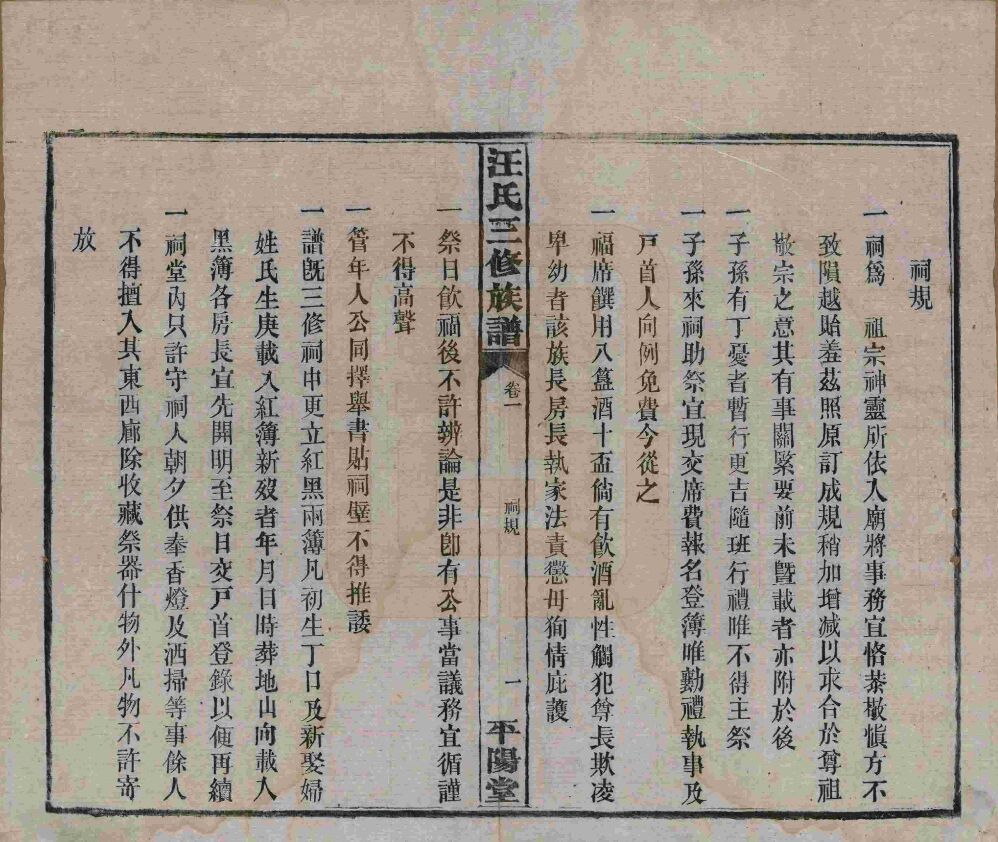 祠規
一祠爲　祖宗神靈所依入廟將事務宜恪恭敬愼方不
致隕越貽羞茲照原訂成規稍加增減以求合於尊祖
敬宗之意其有事關緊要前未曁載者亦附於後
一子孫有丁憂者暫行更吉隨班行禮唯不得主祭
一子孫來祠助祭宜現交席費報名登簿唯勷禮執事及
戸首人向例免費今從之
一福席饌用八簋酒十盃倘有飮酒亂性觸犯尊長欺凌
卑幼者該族長房長執家法責懲毋狥情庇護
汪氏三修族譜
卷一
祠規
一
平陽堂
一祭日飮福後不許辨論是非卽有公事當議務宜循謹
不得高聲
一管年人公同擇舉書貼祠壁不得推諉
一譜旣三修祠中更立紅黑兩簿凡初生丁口及新娶婦
姓氏生庚載入紅簿新歿者年月日時葬地山向載入
黑簿各房長宜先開明至祭日交戸首登錄以便再續
一祠堂內只許守祠人朝夕供奉香燈及洒掃等事餘人
不得擅入其東西廊除收藏祭器什物外凡物不許寄
放